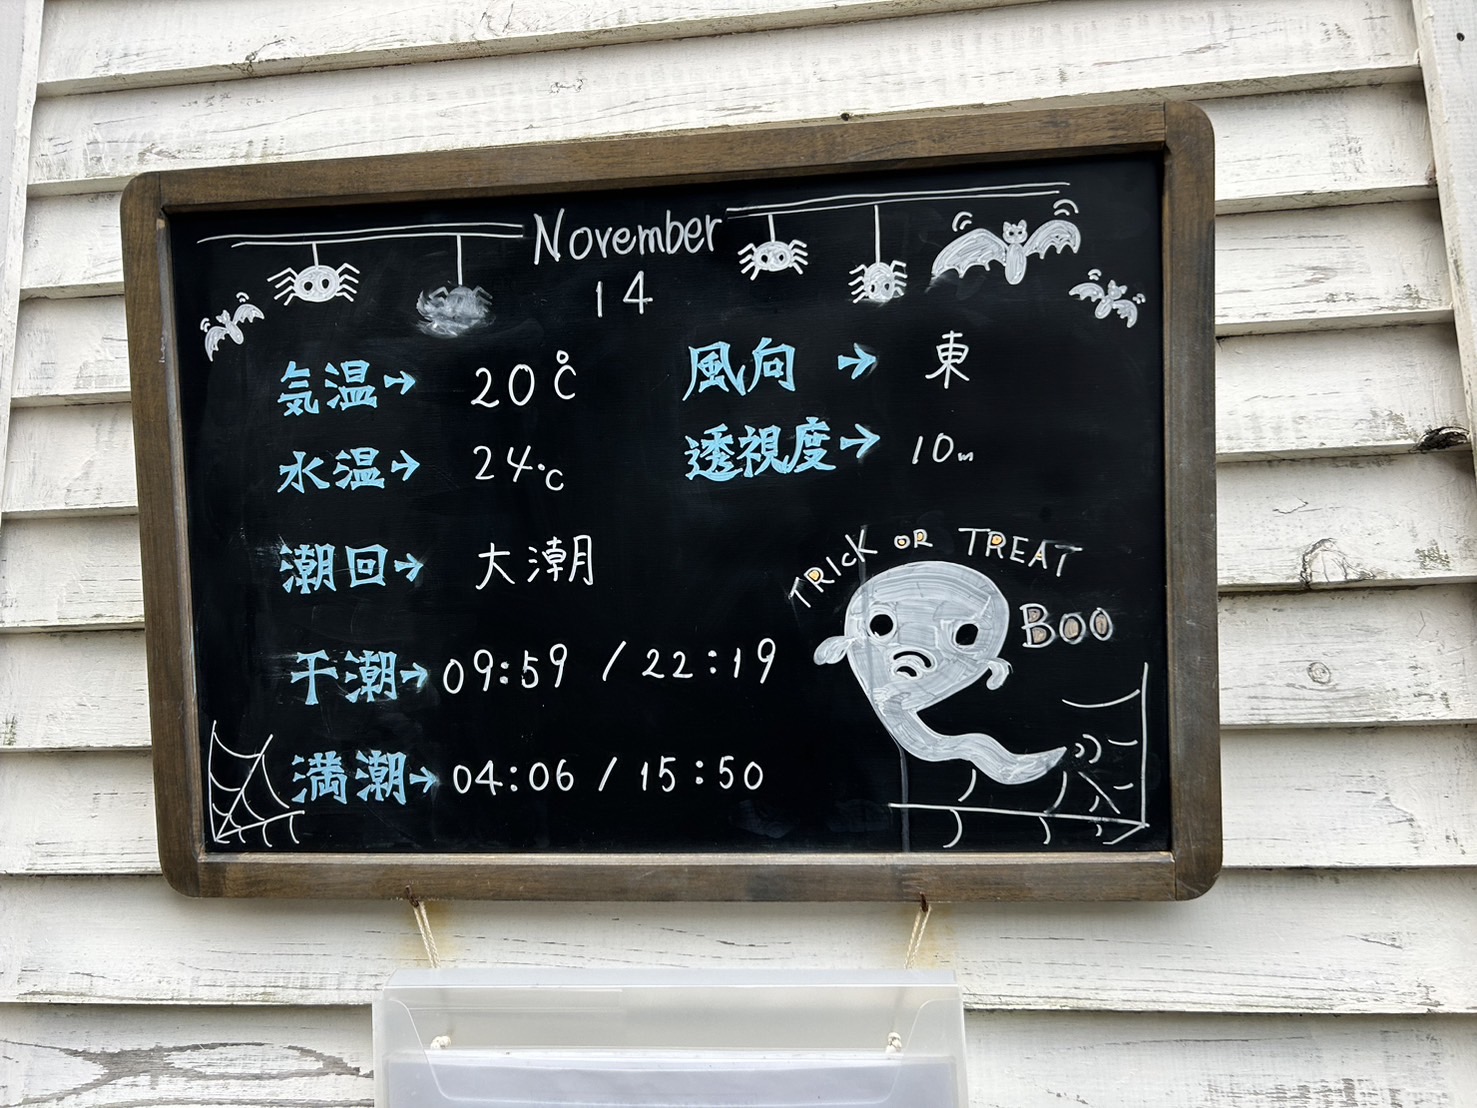 November
14
気温→ 20℃
水温→ 24℃
潮回→ 大潮
干潮→ 09:59 / 22:19
満潮→ 04:06 / 15:50
風向→ 東
透視度→ 10m
TRICK OR TREAT
BOO